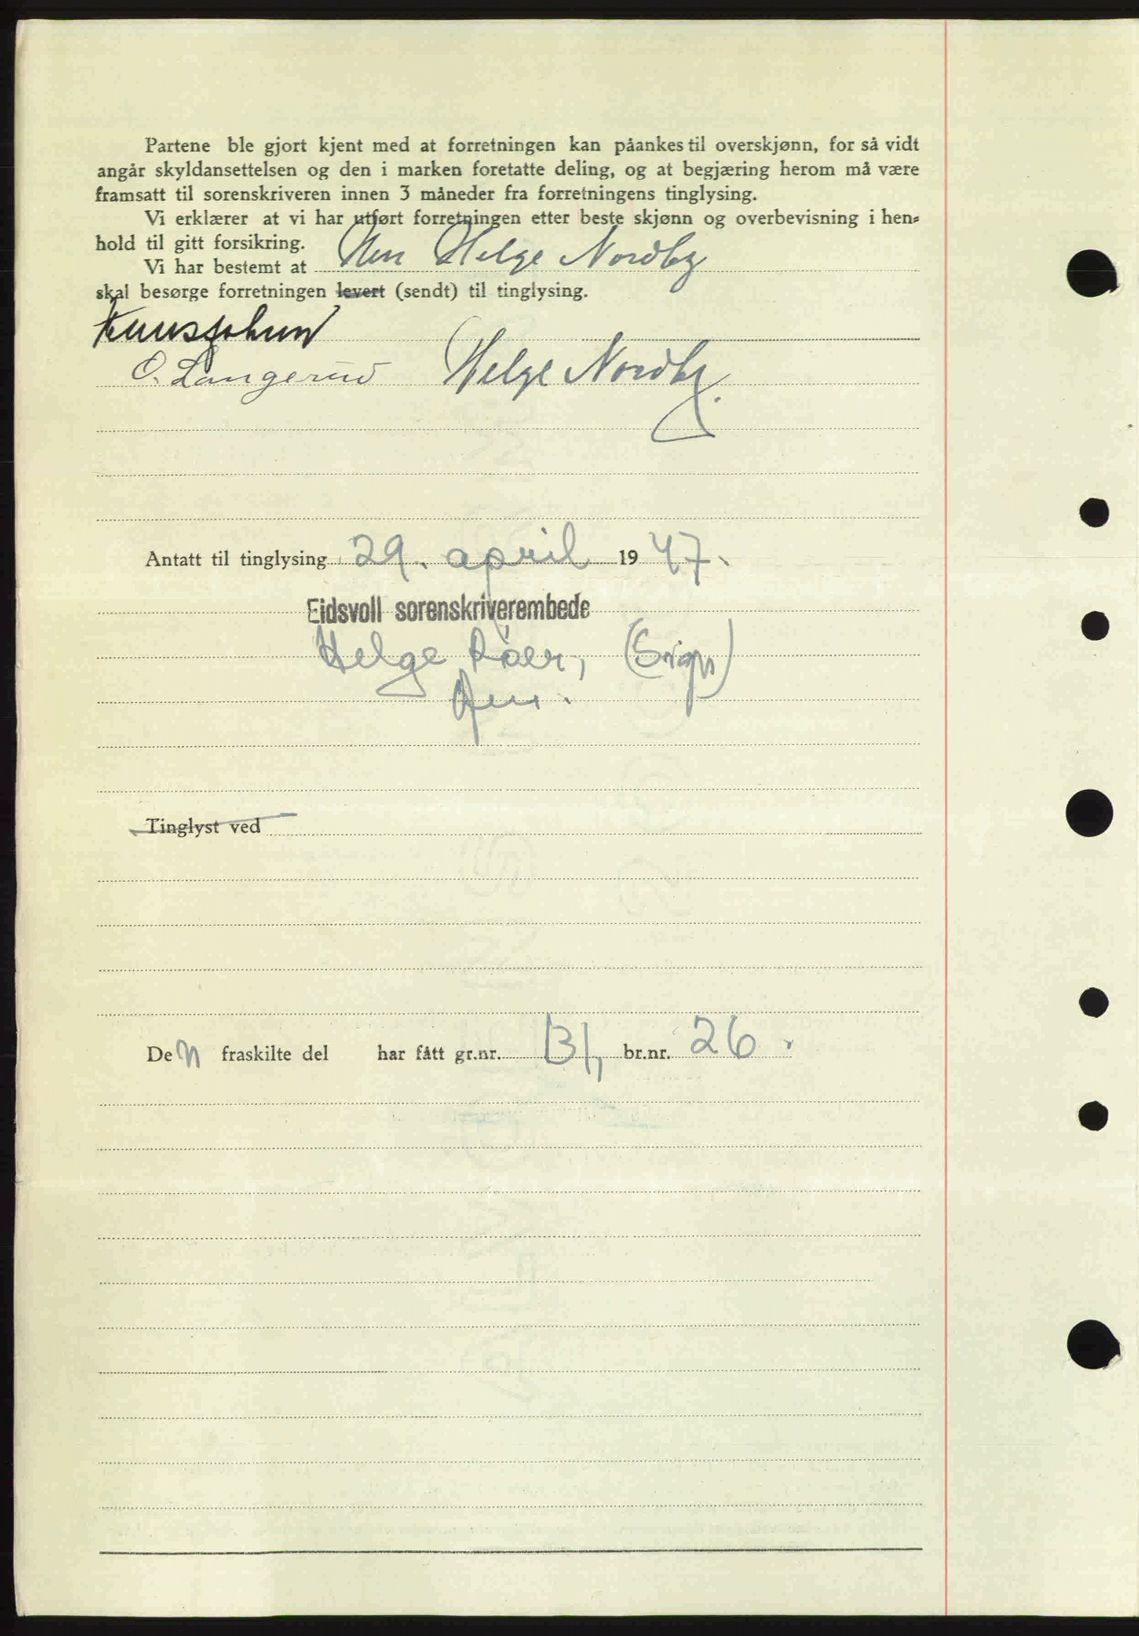 Partene ble gjort kjent med at forretningen kan påankes til overskjønn, for så vidt
angår skyldansettelsen og den i marken foretatte deling, og at begjæring herom må være
framsatt til sorenskriveren innen 3 måneder fra forretningens tinglysing.
Vi erklærer at vi har utført forretningen etter beste skjønn og overbevisning i hen-
hold til gitt forsikring.
Vi har bestemt at Helge Nordby
skal besørge forretningen levert (sendt) til tinglysing.
O. Langerud Helge Nordby
Antatt til tinglysing 29. april 1947.
Eidsvoll sorenskriverembede
Helge Röer, (Sign)
Tinglyst ved
Den fraskilte del har fått gr.nr. 131, br.nr. 26.